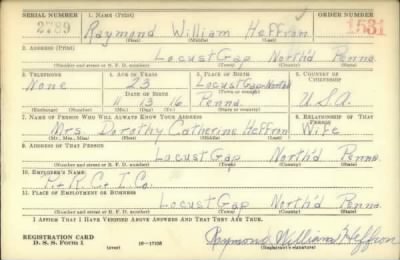 SERIAL NUMBER 1. NAME (Print) ORDER NUMBER
2789 Raymond William Heffron 1531
(First) (Middle) (Last)
2. ADDRESS (Print)
Locust Gap North'd Penna
(Number and street or R. F. D. number) (Town) (County) (State)
3. TELEPHONE 4. AGE IN YEARS 5. PLACE OF BIRTH 6. COUNTRY OF CITIZENSHIP
None 23 Locust Gap North'd
DATE OF BIRTH (Town or county)
11 13 16 Penna. U.S.A.
(Exchange) (Number) (Mo.) (Day) (Yr.) (State or country)
7. NAME OF PERSON WHO WILL ALWAYS KNOW YOUR ADDRESS 8. RELATIONSHIP OF THAT PERSON
Mrs Dorothy Catherine Heffron Wife
(Mr., Mrs., Miss) (First) (Middle) (Last)
9. ADDRESS OF THAT PERSON
Locust Gap North'd Penna
(Number and street or R. F. D. number) (Town) (County) (State)
10. EMPLOYER'S NAME
P.&R.C.&I.Co.
11. PLACE OF EMPLOYMENT OR BUSINESS
Locust Gap North'd Penna
(Number and street or R. F. D. number) (Town) (County) (State)
I AFFIRM THAT I HAVE VERIFIED ABOVE ANSWERS AND THAT THEY ARE TRUE.
REGISTRATION CARD
D. S. S. Form 1 (over) 16—17105 Raymond William Heffron
(Registrant's signature)